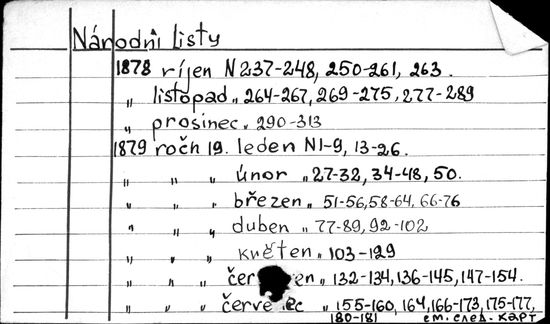 Národni listy
1878 ríjen N 237-248, 250-261, 263.
" listopad " 264-267, 269-275, 277-289
" prosinec " 290-313
1879 ročn 19. leden N1-9, 13-26.
" " " únor " 27-32, 34-48, 50.
" " " březen " 51-56, 58-64, 66-76
" " " duben " 77-89, 92-102
" " " květen " 103-129
" " " " 132-134, 136-145, 147-154.
" " " " 155-160, 164, 166-173, 175-177,
180-181 см. след. карт